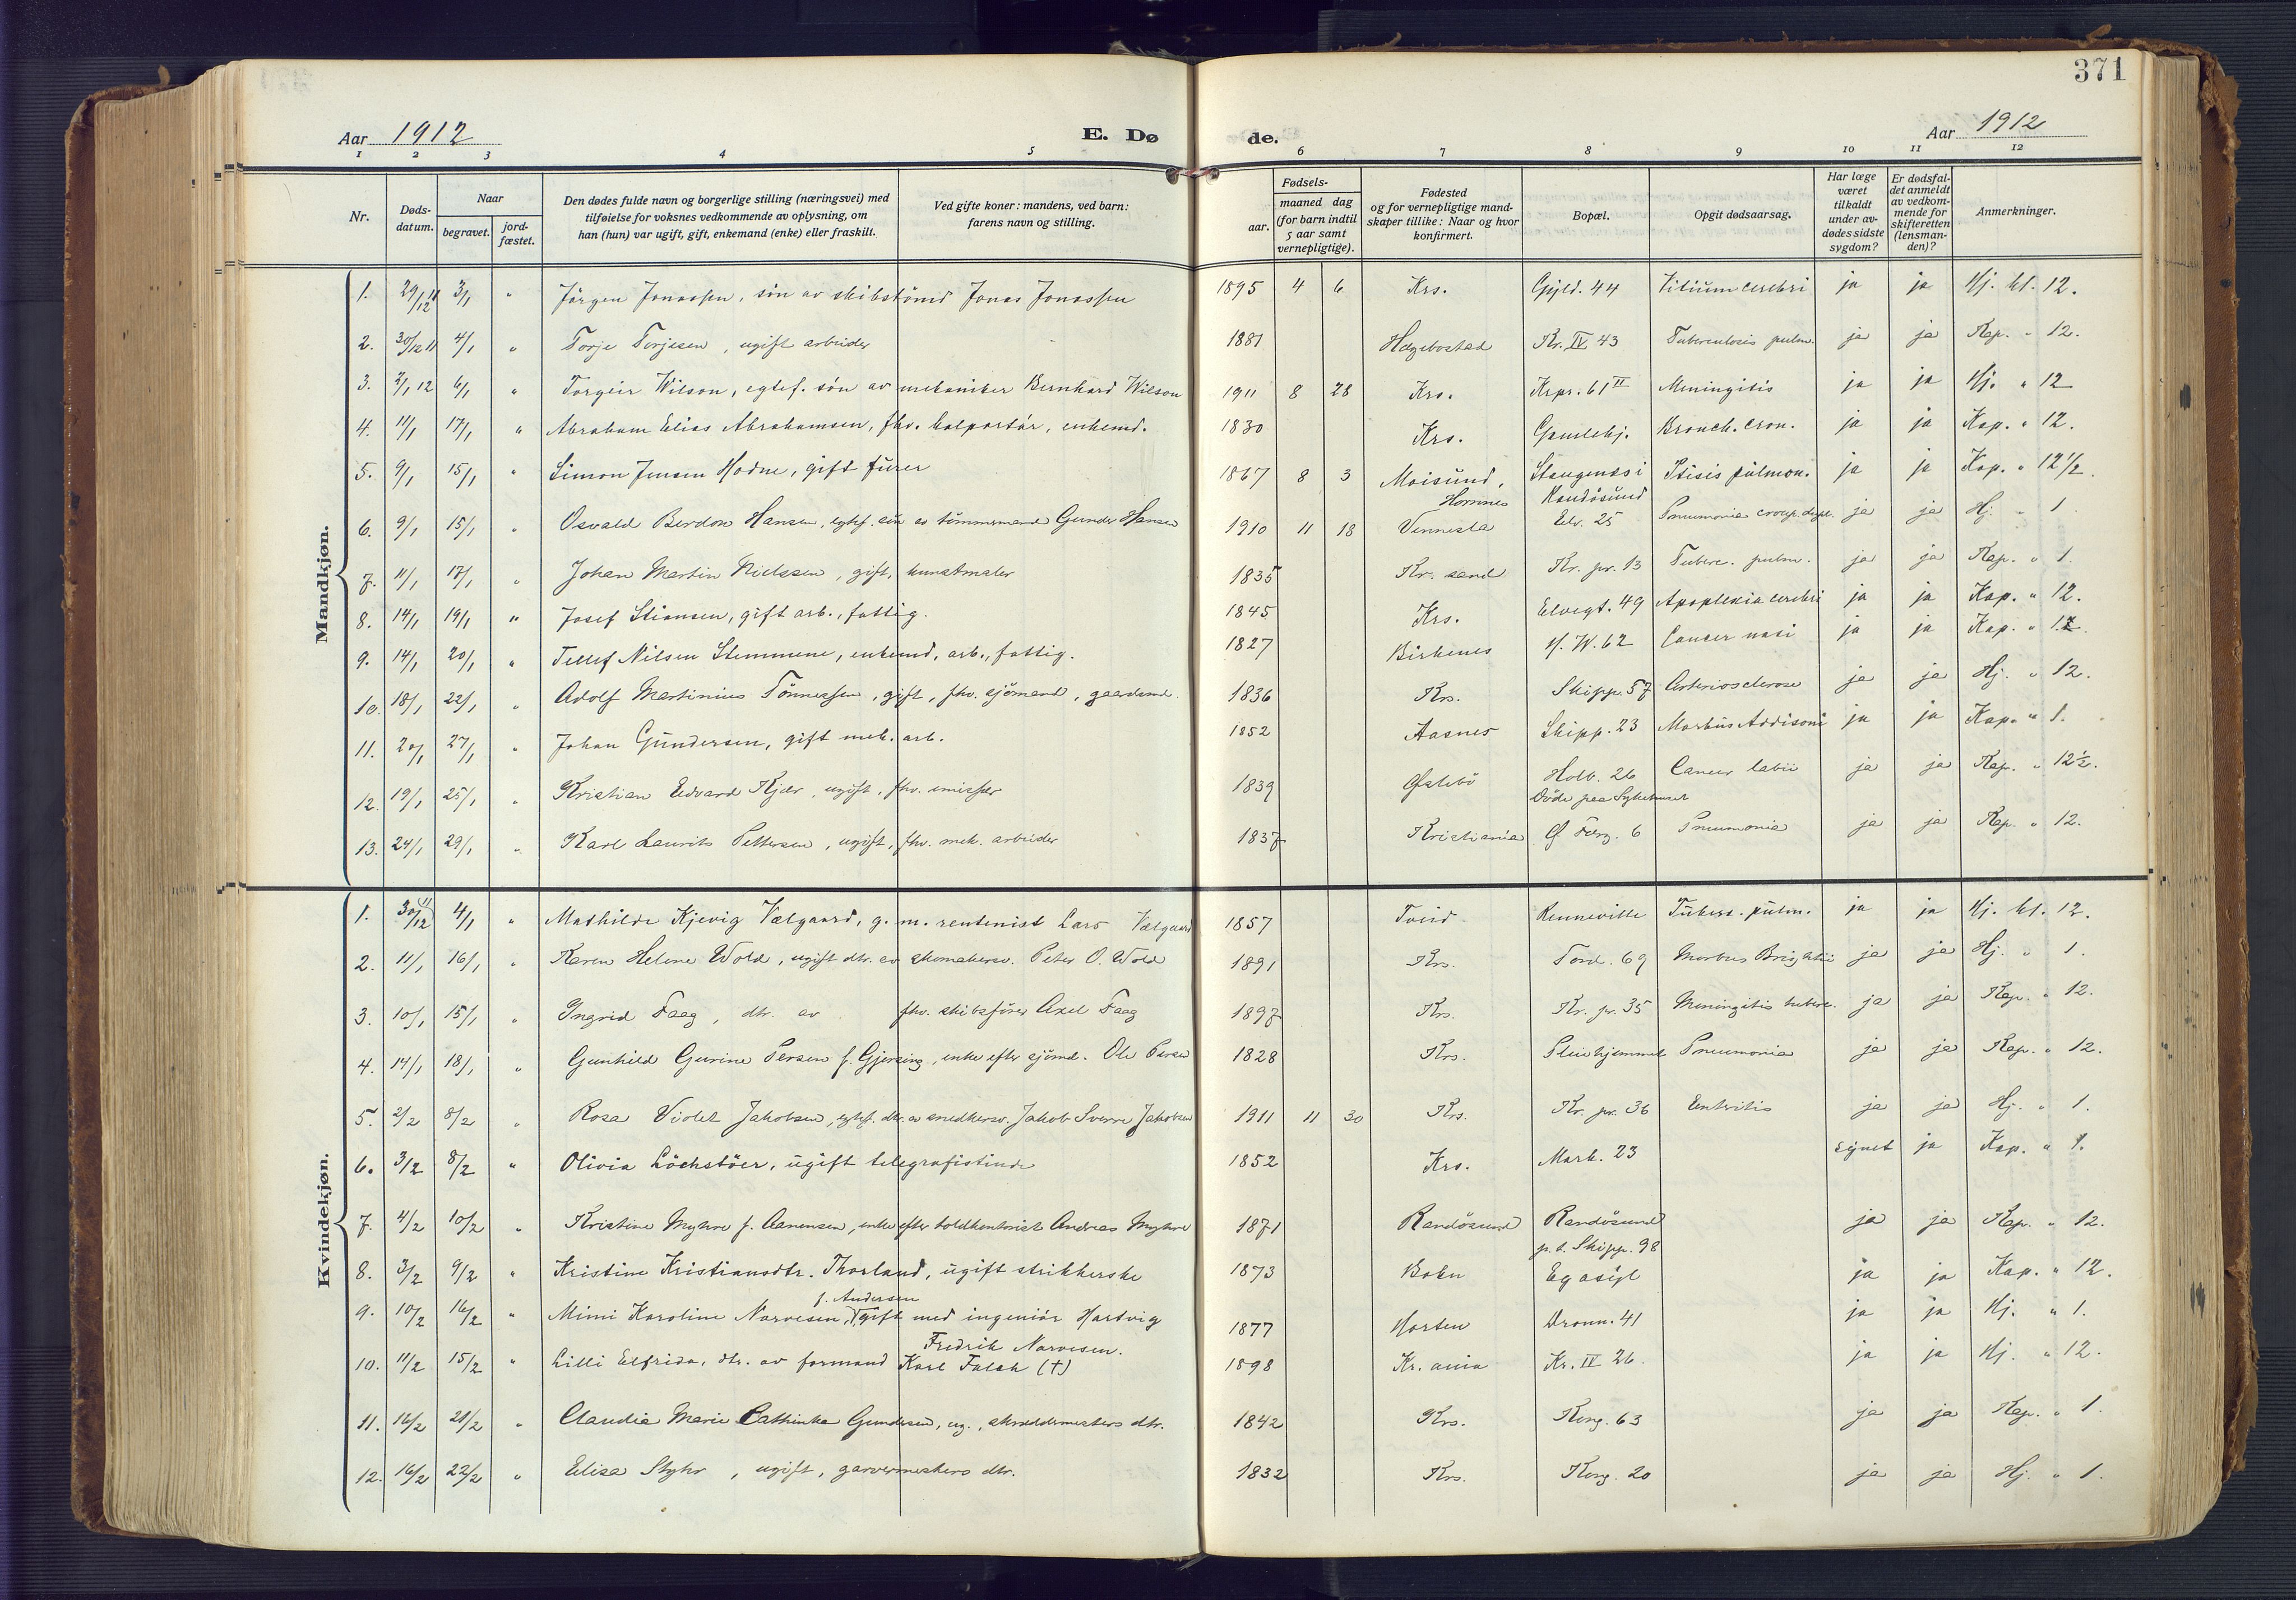 371
Aar 1912 E. Dø de. Aar 1912
1 2 3 4 5 6 7 8 9 10 11 12
Nr. Døds-datum. Naar begravet. jord-fæstet. Den dødes fulde navn og borgerlige stilling (næringsvei) med tilføielse for voksnes vedkommende av oplysning, om han (hun) var ugift, gift, enkemand (enke) eller fraskilt. Ved gifte koner: mandens, ved barn: farens navn og stilling. Fødsels- aar. maaned dag (for barn indtil 5 aar samt vernepligtige). Fødested og for vernepligtige mand-skaper tillike: Naar og hvor konfirmert. Bopæl. Opgit dødsaarsag. Har læge været tilkaldt under av-dødes sidste sygdom? Er dødsfal-det anmeldt av vedkom-mende for skifteretten (lensman-den)? Anmerkninger.
Mandkjøn.
1. 29/12 11 3/1 " Jörgen Jonassen, sön av skibstömd Jonas Jonassen 1895 4 6 Krs. Gyld. 44 Vitium cerebri ja ja Hj. kl. 12.
2. 30/12 11 4/1 " Torje Torjesen, ugift arbeider 1881 Hægebostad Kr. IV 43 Tuberculosis pulm. ja ja Kap. " 12.
3. 2/1 12 6/1 " Torgeir Wilson, egtef. sön av mekaniker Bernhard Wilson 1911 8 28 Krs. Krpr. 61 II Meningitis ja ja Hj. " 12
4. 11/1 17/1 " Abraham Elias Abrahamsen, fhv. kolportör, enkemd. 1830 Krs. Gamlehj. Bronch. cron. ja ja Kap. " 12.
5. 9/1 15/1 " Simon Jensen Hodne, gift fürer 1867 8 3 Moisund, Hornnes Stangenes i Randösund Ptisis pulmon. ja ja Kap. " 12½.
6. 9/1 15/1 " Osvald Berdon Hansen, egtef. sön av tömmermand Gunder Hansen 1910 11 18 Vennesla Elv. 25 Pneumonia croup. dupl. ja ja Hj. " 1
7. 11/1 17/1 " Johan Martin Nielssen, gift, kunstmaler 1835 Kr. sand Kr. pr. 13 Tuberc. pulm. ja ja Kap. " 1.
8. 14/1 19/1 " Josef Stiansen, gift arb., fattig. 1845 Krs. Elvegt. 49 Apoplexia cerebri ja ja Kap. " 12.
9. 14/1 20/1 " Tellef Nilsen Stemmene, enkemd, arb., fattig. 1827 Birkenes H. W. 62 Cancer nasi ja ja Kap. "
10. 18/1 22/1 " Adolf Martinius Tönnessen, gift, fhv. sjömand, gaardmd. 1836 Krs. Skipp. 57 Arteriosclerose ja ja Hj. " 12.
11. 20/1 27/1 " Johan Gundersen, gift mek. arb. 1852 Aasnes Skipp. 23 Morbus Addisoni ja ja Kap. " 1.
12. 19/1 25/1 " Kristian Edvard Kjær, ugift, fhv. emissær 1839 Øslebö Holb. 26 Döde paa Sykehuset Cancer labii ja ja Kap. " 12½.
13. 24/1 29/1 " Karl Laurits Pettersen, ugift, fhv. mek. arbeider 1837 Kristiania Ø. 6 Pneumonia ja ja Kap. " 12.
Kvindekjøn.
1. 30/12 11 4/1 " Mathilde Kjevig Vælgaard, g. m. rentenist Lars Vælgaard 1857 Tveid Renneville Tuberc. pulm. ja ja Hj. kl. 12.
2. 11/1 16/1 " Karen Helene Wold, ugift dtr. av skomakersv. Peter O. Wold 1891 Krs. Tord. 69 Morbus Brightii ja ja Hj. " 1.
3. 10/1 15/1 " Ingrid Faag, dtr. av fhv. skibsförer Axel Faag 1897 Krs. Kr. pr. 35 Meningitis tuberc. ja ja Kap. " 12.
4. 14/1 18/1 " Gunhild Gurine Persen f. Gjersing, enke efter sjömd. Ole Persen 1828 Krs. Pleiehjemmet Pneumonia ja ja Kap. " 12.
5. 2/2 8/2 " Rosa Violet Jakobsen, egtef. dtr. av snedkersv. Jakob Sverre Jakobsen 1911 11 30 Krs. Kr. pr. 36 Enteritis ja ja Hj. " 1.
6. 3/2 8/2 " Olivia Löchstöer, ugift telegrafistinde 1852 Krs. Mark. 23 synet ja Kap. " 1.
7. 4/2 10/2 " Kristine Myhre f. Aanensen, enke efter toldkontorist Andreas Myhre 1871 Randösund Randösund p.t. Skipp. 98 ja ja Kap. " 12.
8. 3/2 9/2 " Kristine Kristiansdtr. Thorland, ugift strikkerske 1873 Bokn Eg asyl ja ja Kap. " 12.
9. 10/2 16/2 " Mimi Karoline Narvesen, f. Andersen gift med ingeniör Hartvig Fredrik Narvesen. 1877 Horten Dronn. 41 ja ja Hj. " 1.
10. 11/2 15/2 " Lilli Elfrida, dtr. av formand Karl Falch (†) 1898 Kr. ania Kr. IV 26. ja ja Hj. " 12.
11. 16/2 21/2 " Claudia Marie Cathinka Gundersen, ug., skreddermesters dtr. 1842 Krs. Kong. 63 ja ja Kap. " 1.
12. 16/2 22/2 " Elisa Styhr, ugift, garvermesters dtr. 1832 Krs. Kong. 20 ja ja Hj. " 1.